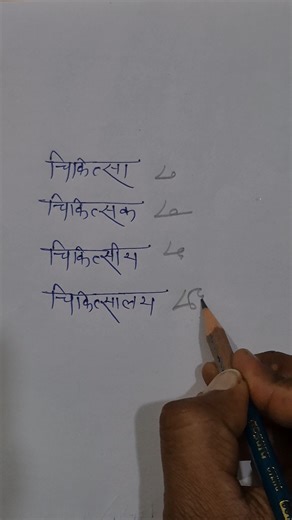 चिकित्सा
चिकित्सक
चिकित्सीय
चिकित्सालय